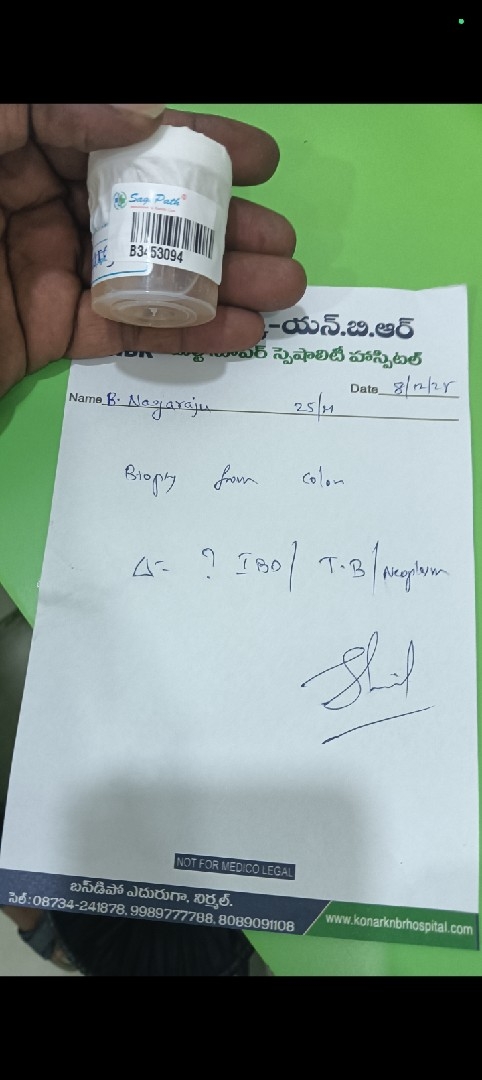 Sage Path
B3453094
-యన్.బి.ఆర్
సూపర్ స్పెషాలిటీ హాస్పిటల్
Date 8/12/25
Name B. Nagaraju 25/M
Biopsy from colon
Δ= ? IBD / T.B / Neoplasm
NOT FOR MEDICO LEGAL
బస్‌డిపో ఎదురుగా, నిర్మల్.
సెల్: 08734-241878, 9989777788, 8089091108
www.konarknbrhospital.com